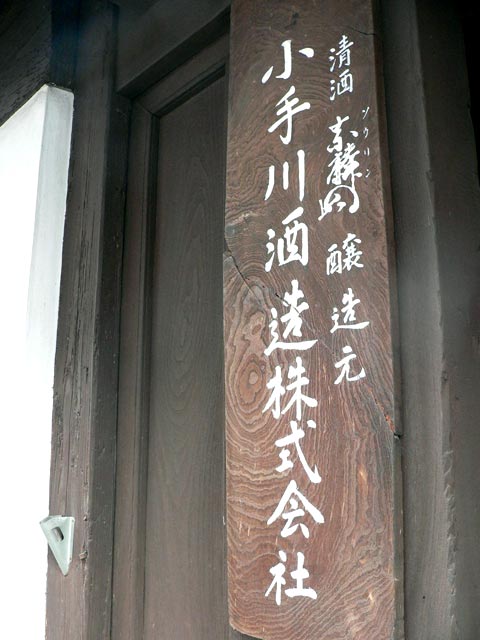 清酒 宗麟 醸造元
ソウリン
小手川酒造株式会社